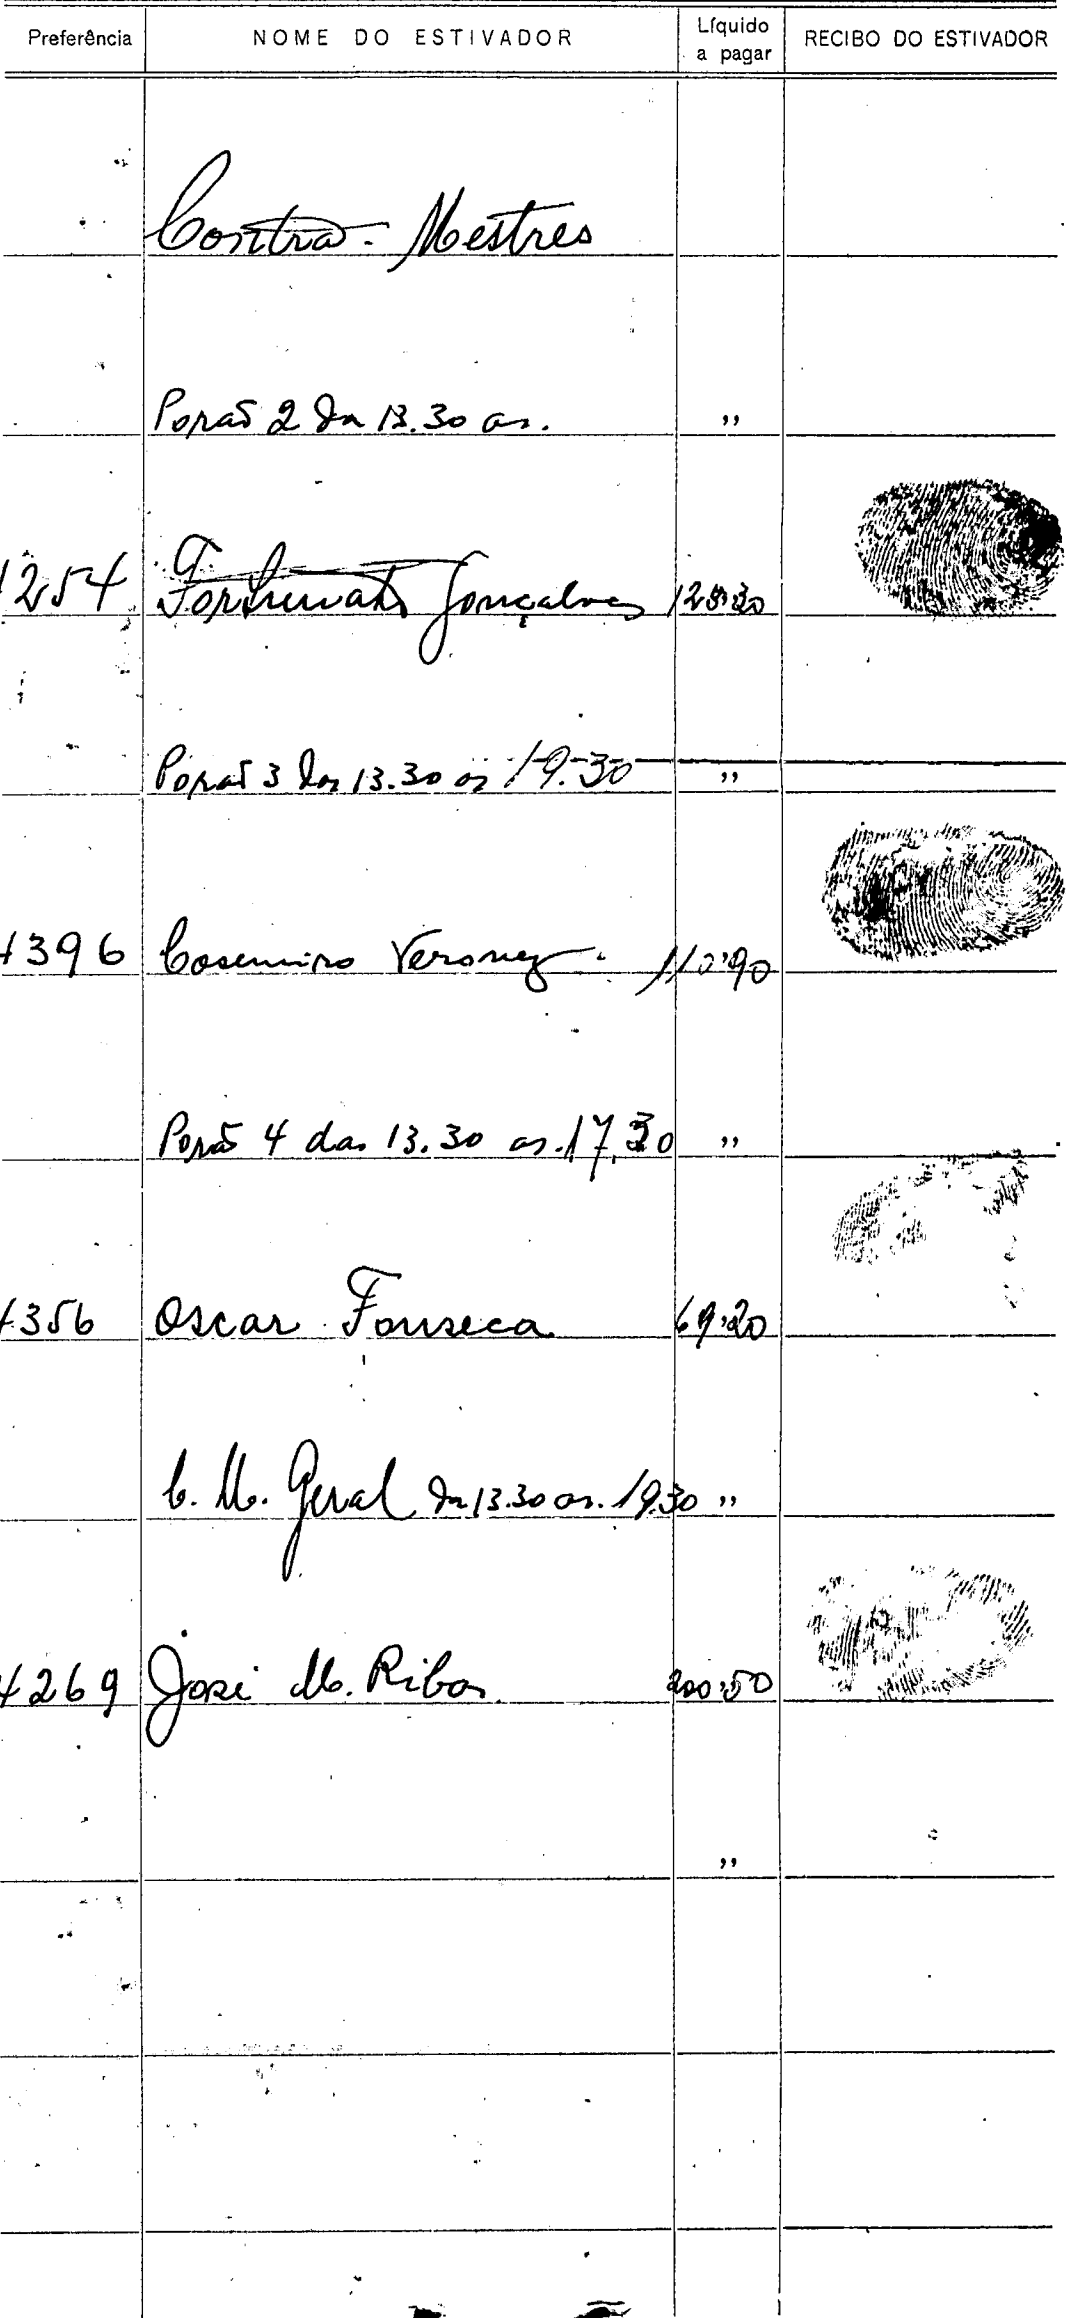 Preferência NOME DO ESTIVADOR Líquido a pagar RECIBO DO ESTIVADOR
Contra-Mestres
Porão 2 das 13.30 as. "
1254 Fortunato Gonçalves
Porão 3 das 13.30 as 19.30 "
4396 Casemiro Veronez 110,90
Porão 4 das 13.30 as. 17.30 "
4356 Oscar Fonseca 69,20
C. M. Geral das 13.30 as. 19.30 "
4269 José M. Ribas 200,50
"